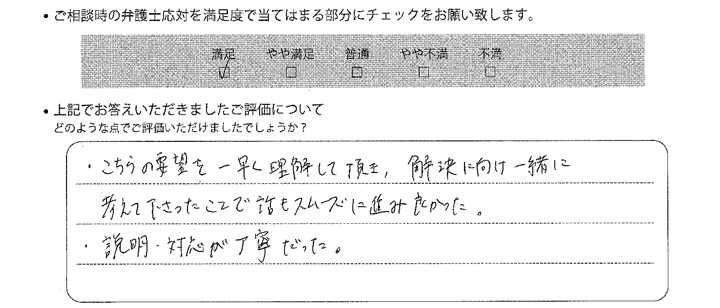 ・ご相談時の弁護士応対を満足度で当てはまる部分にチェックをお願い致します。
満足 やや満足 普通 やや不満 不満
☑ □ □ □ □
・上記でお答えいただきましたご評価について
どのような点でご評価いただけましたでしょうか?
・こちらの要望を一早く理解して頂き,解決に向け一緒に
考えて下さったことで話もスムーズに進み良かった。
・説明・対応が丁寧だった。